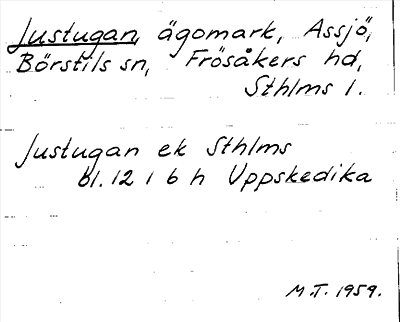 Justugan, ägomark, Assjö,
Börstils sn, Frösåkers hd,
Sthlms l.
Justugan ek Sthlms
bl. 12 i 6 h Uppskedika
M.T. 1959.